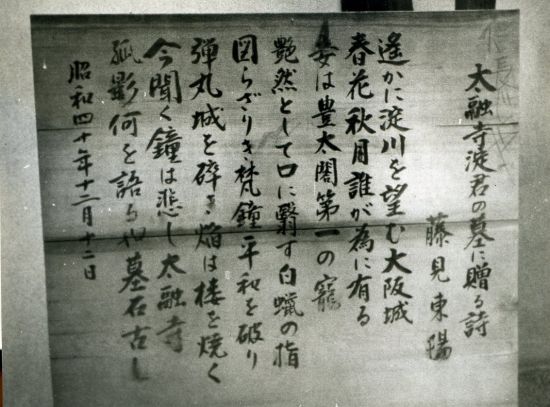 太融寺淀君の墓に贈る詩
藤見東陽
遙かに淀川を望む大阪城
春花秋月誰が為に有る
妾は豊太閤第一の寵
艶然として口に翳す白蝋の指
図らざりき梵鐘平和を破り
弾丸城を砕き焔は楼を焼く
今聞く鐘は悲し太融寺
孤影何を語るや墓石古し
昭和四十年十二月十二日